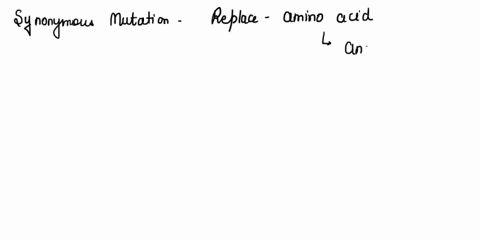 Synonymous Mutation - Replace - amino acid
↳ an